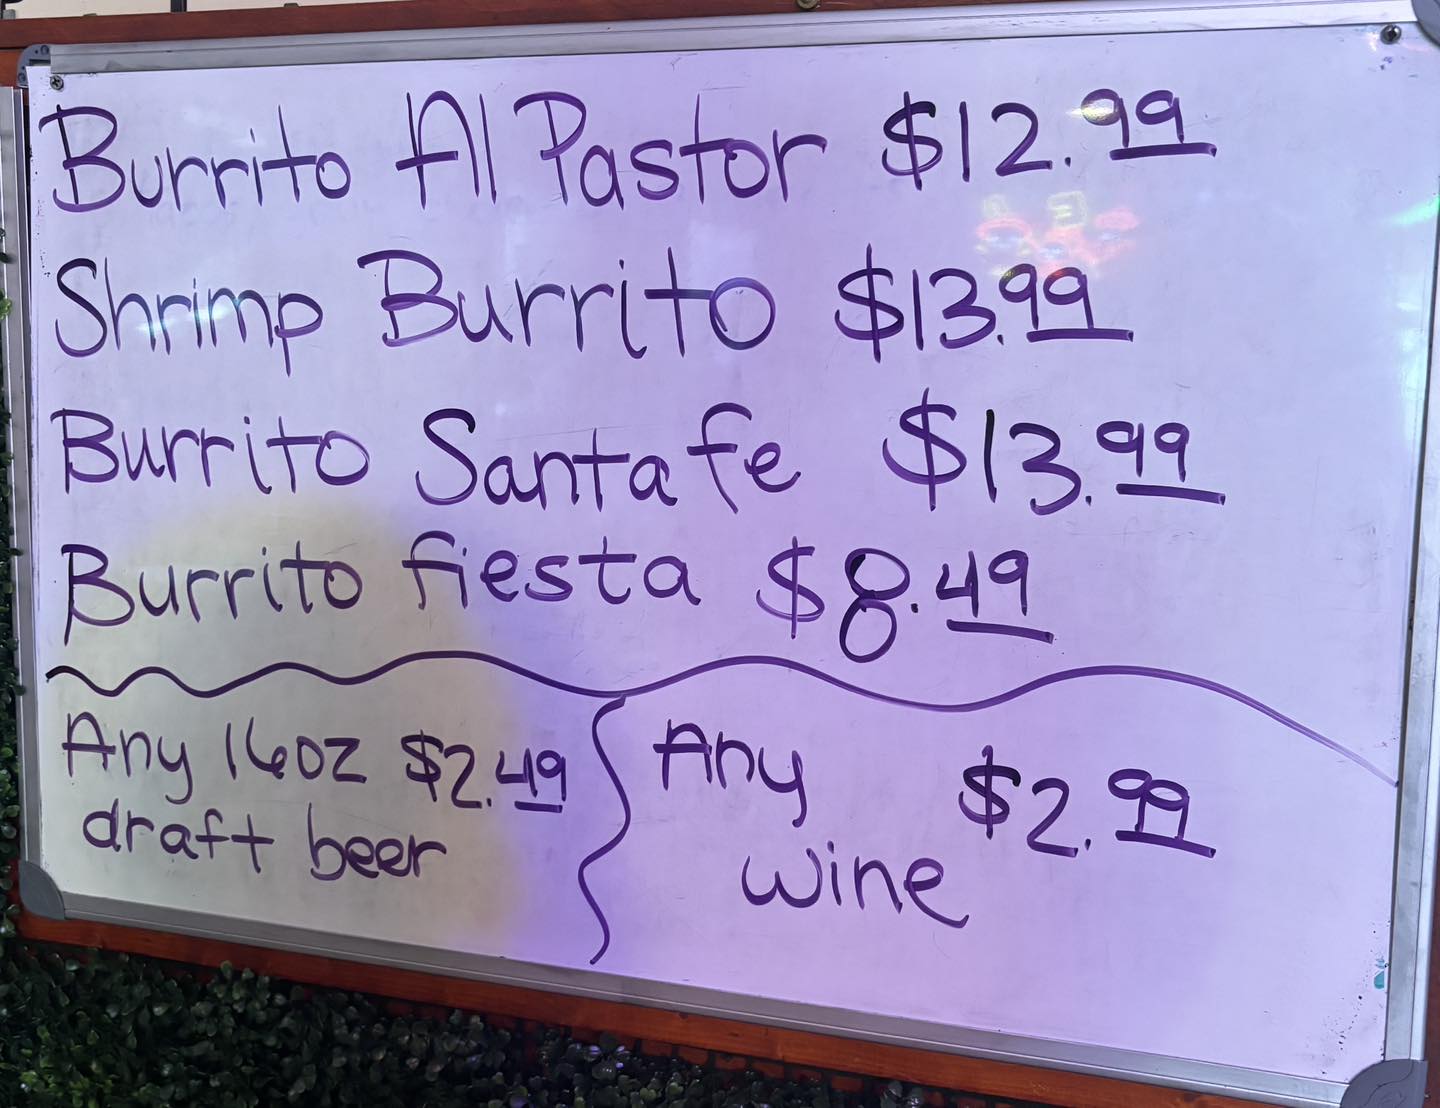 Burrito Al Pastor $12.99
Shrimp Burrito $13.99
Burrito Santa fe $13.99
Burrito fiesta $8.49
Any 16oz $2.49
draft beer
Any $2.99
wine